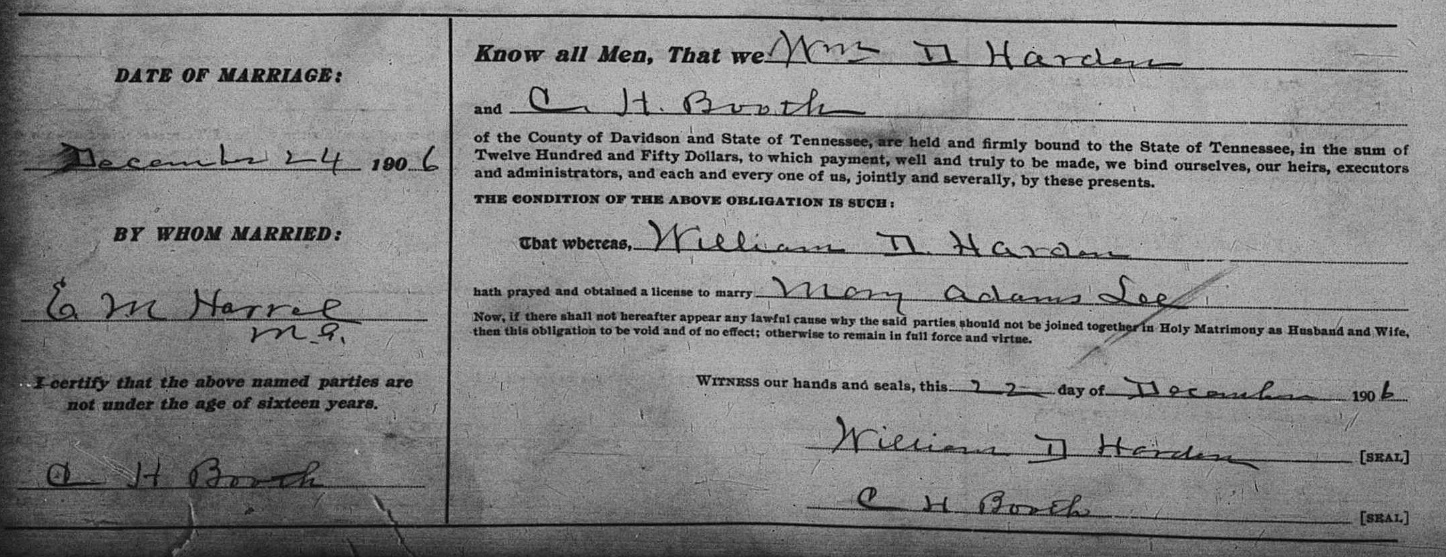 DATE OF MARRIAGE:
December 24 1906
BY WHOM MARRIED:
E M Harrel
M.G.
I certify that the above named parties are
not under the age of sixteen years.
C H Booth
Know all Men, That we Wm D Harden
and C. H. Booth
of the County of Davidson and State of Tennessee, are held and firmly bound to the State of Tennessee, in the sum of
Twelve Hundred and Fifty Dollars, to which payment, well and truly to be made, we bind ourselves, our heirs, executors
and administrators, and each and every one of us, jointly and severally, by these presents.
THE CONDITION OF THE ABOVE OBLIGATION IS SUCH:
That whereas, William D. Harden
hath prayed and obtained a license to marry Mary Adams Lee
Now, if there shall not hereafter appear any lawful cause why the said parties should not be joined together in Holy Matrimony as Husband and Wife,
then this obligation to be void and of no effect; otherwise to remain in full force and virtue.
WITNESS our hands and seals, this 22 day of December 1906
William D Harden [SEAL]
C H Booth [SEAL]